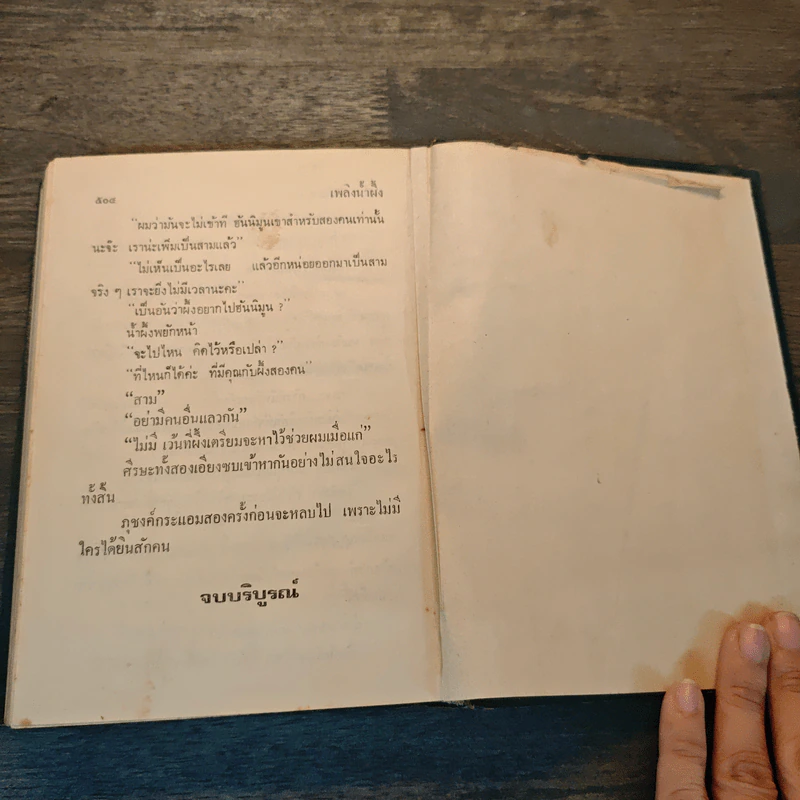 ๕๐๘
เพลิงน้ำผึ้ง
"ผมว่ามันจะไม่เข้าที ฮันนิมูนเขาสำหรับสองคนเท่านั้น
นะจ๊ะ เราน่ะเพิ่มเป็นสามแล้ว"
"ไม่เห็นเป็นอะไรเลย แล้วอีกหน่อยออกมาเป็นสาม
จริง ๆ เราจะยิ่งไม่มีเวลานะคะ"
"เป็นอันว่าผึ้งอยากไปฮันนิมูน ?"
น้ำผึ้งพยักหน้า
"จะไปไหน คิดไว้หรือเปล่า ?"
"ที่ไหนก็ได้ค่ะ ที่มีคุณกับผึ้งสองคน"
"สาม"
"อย่ามีคนอื่นแลวกัน"
"ไม่มี เว้นที่ผึ้งเตรียมจะหาไว้ช่วยผมเมื่อแก่"
ศีรษะทั้งสองเอียงซบเข้าหากันอย่างไม่สนใจอะไร
ทั้งสิ้น
ภุชงค์กระแอมสองครั้งก่อนจะหลบไป เพราะไม่มี
ใครได้ยินสักคน
จบบริบูรณ์